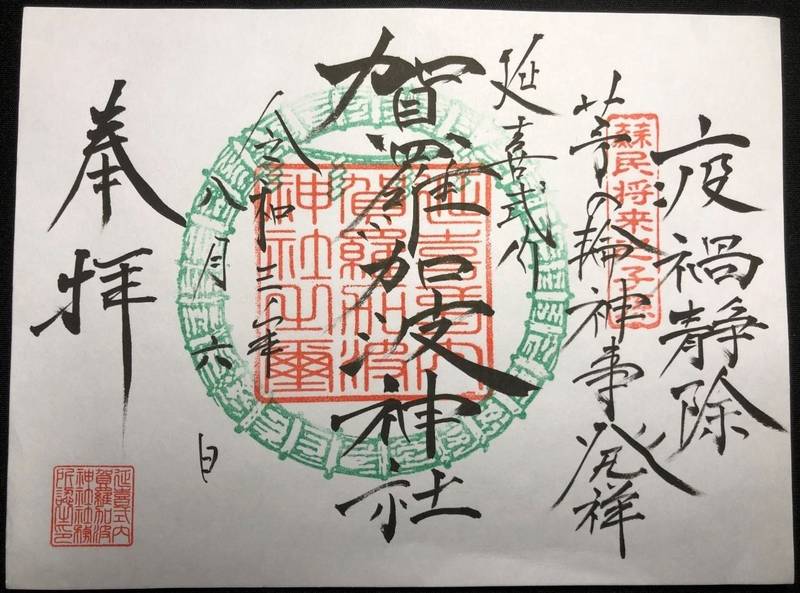 疫禍静除
蘇民将来之子孫
茅の輪神事発祥
延喜式内
賀羅加波神社
延喜式内
賀羅加波
神社之璽
令和三年
八月六日
奉拝
延喜式内
賀羅加波
神社社務
所認之印